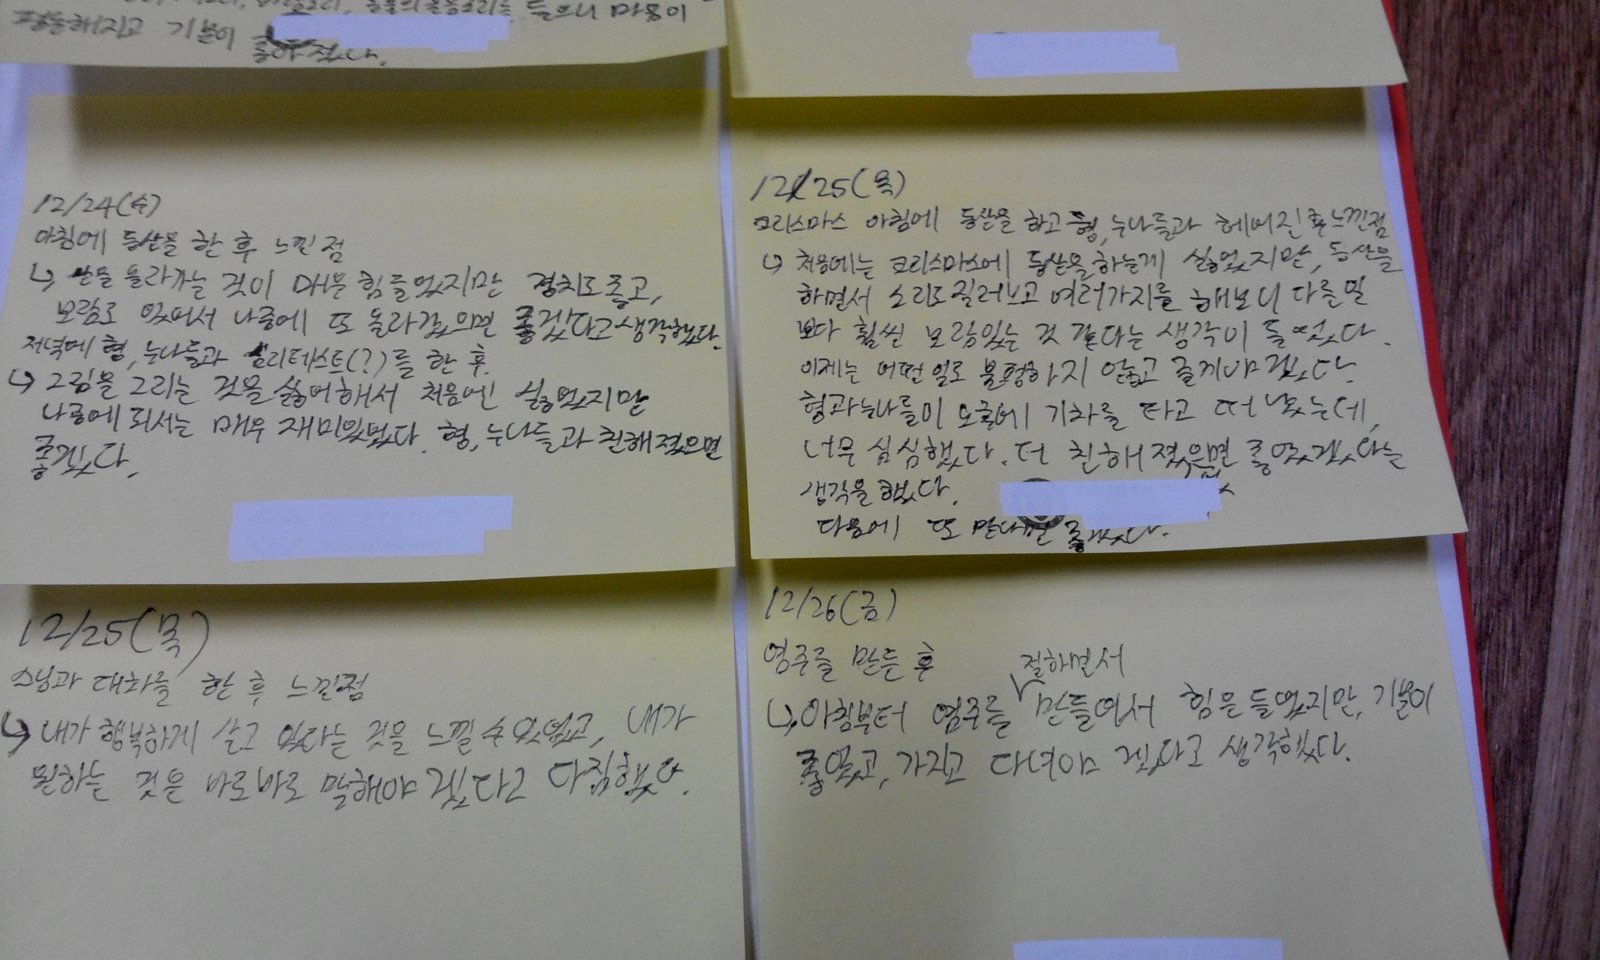 들으니 마음이
해지고 기분이
좋아졌다.
12/24(수)
아침에 등산을 한 후 느낀점
↳ 산을 올라가는 것이 매우 힘들었지만 경치도 좋고,
보람도 있어서 나중에 또 올라갔으면 좋겠다고 생각했다.
저녁에 형, 누나들과 심리테스트(?)를 한 후
↳ 그림을 그리는 것을 싫어해서 처음엔 싫었지만
나중에 되서는 매우 재미있었다. 형, 누나들과 친해졌으면
좋겠다.
12/25(목)
크리스마스 아침에 등산을 하고 형, 누나들과 헤어진 후 느낀점
↳ 처음에는 크리스마스에 등산을 하는게 싫었지만, 등산을
하면서 소리도 질러보고 여러가지를 해보니 다른 일
보다 훨씬 보람있는 것 같다는 생각이 들었다.
이제는 어떤 일로 불평하지 않고 즐겨야 겠다.
형과 누나들이 오후에 기차를 타고 떠났는데,
너무 심심했다. 더 친해졌으면 좋았겠다는
생각을 했다.
다음에 또 만나면 좋겠다.
12/25(목)
스님과 대화를 한 후 느낀점
↳ 내가 행복하게 살고 있다는 것을 느낄 수 있었고, 내가
원하는 것은 바로바로 말해야 겠다고 다짐했다.
12/26(금)
염주를 만든 후
↳ 아침부터 염주를 절하면서 만들어서 힘은 들었지만, 기분이
좋았고, 가지고 다녀야 겠다고 생각했다.